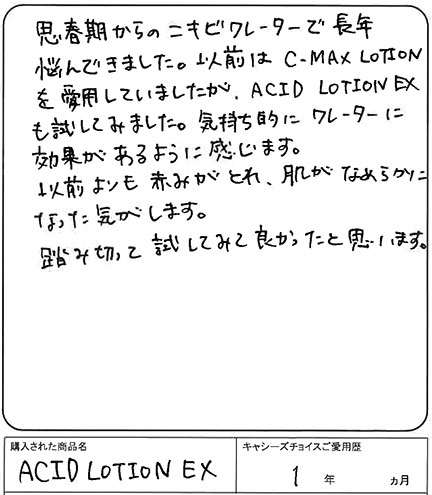 思春期からのニキビクレーターで長年
悩んできました。以前は C-MAX LOTION
を愛用していましたが、ACID LOTION EX
も試してみました。気持ち的にクレーターに
効果があるように感じます。
以前よりも赤みがとれ、肌がなめらかに
なった気がします。
踏み切って試してみて良かったと思います。
購入された商品名
キャシーズチョイスご愛用歴
ACID LOTION EX
1 年 ヵ月